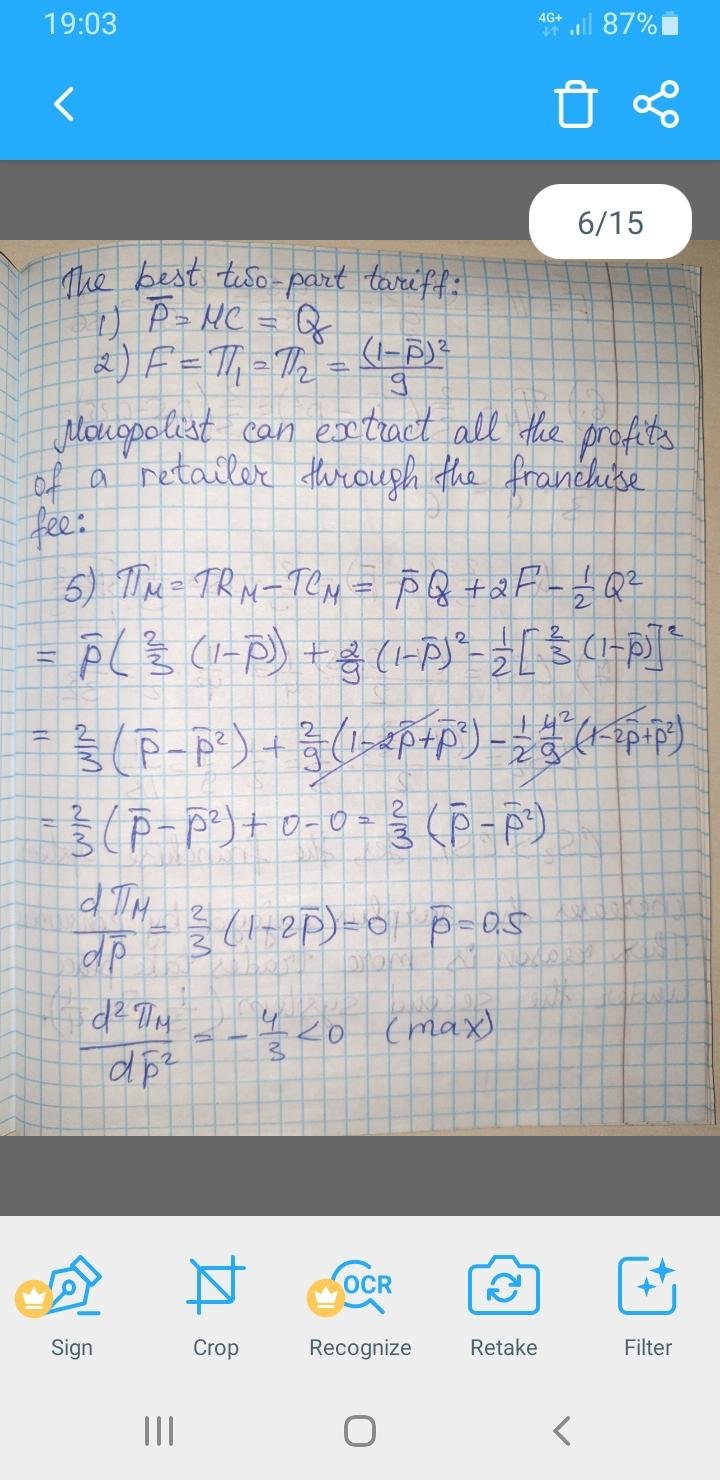 19:03
4G+ 87%
6/15
The best two-part tariff:
1) P̄ = MC = Q
2) F = Π₁ = Π₂ = (1-p̄)²/9
Monopolist can extract all the profits
of a retailer through the franchise
fee:
5) Πм = TRм - TCм = p̄Q + 2F - 1/2 Q²
= p̄(2/3 (1-p̄)) + 2/9 (1-p̄)² - 1/2 [2/3 (1-p̄)]²
= 2/3 (p̄ - p̄²) + 2/9 (1-2p̄+p̄²) - 1/2 4²/9 (1-2p̄+p̄²)
= 2/3 (p̄ - p̄²) + 0 - 0 = 2/3 (p̄ - p̄²)
dΠм/dp̄ = 2/3 (1-2p̄) = 0 p̄ = 0.5
d²Πм/dp̄² = - 4/3 < 0 (max)
OCR
Sign Crop Recognize Retake Filter